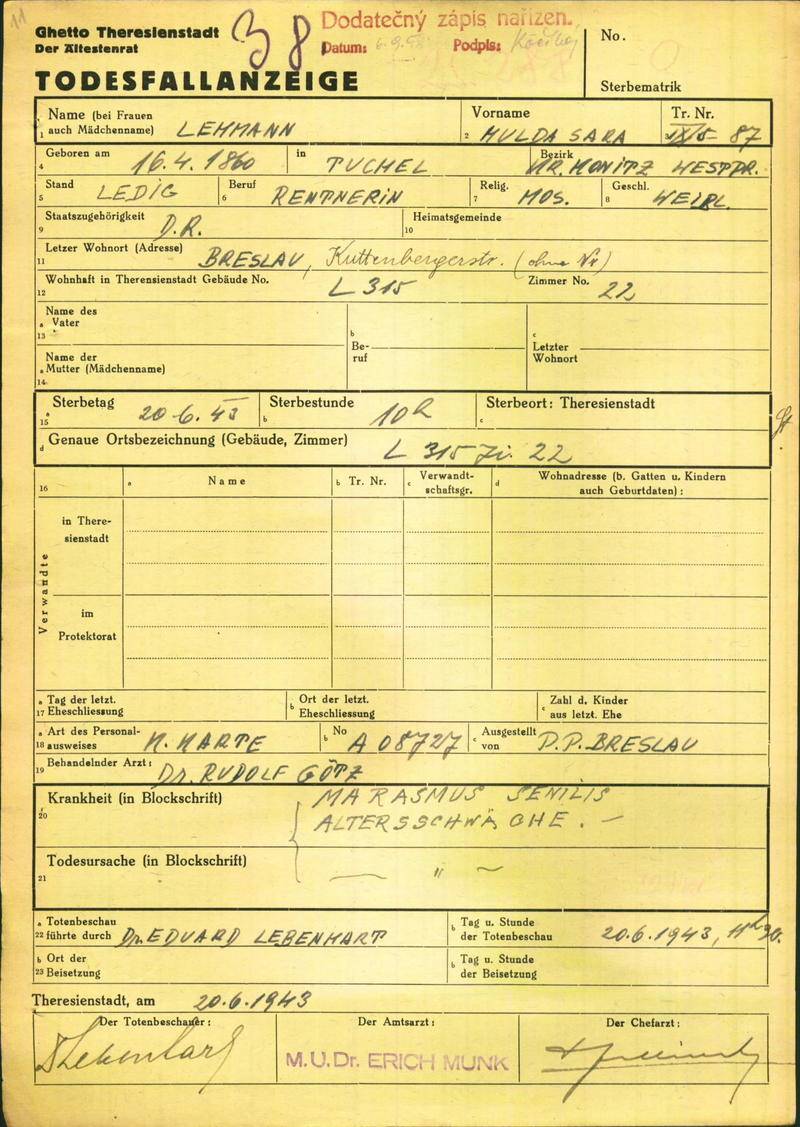 11
Ghetto Theresienstadt
Der Ältestenrat
38
Dodatečný zápis nařízen.
Datum: Podpis:
No.
TODESFALLANZEIGE
Sterbematrik
Name (bei Frauen
1 auch Mädchenname) LEHMANN
Vorname
2 HULDA SARA
Tr. Nr.
3 IX/5 - 87
4 Geboren am 16.4.1860 in TUCHEL Bezirk KR. KONITZ WESTPR.
5 Stand LEDIG 6 Beruf RENTNERIN 7 Relig. MOS. 8 Geschl. WEIBL.
9 Staatszugehörigkeit D.R. 10 Heimatsgemeinde
11 Letzer Wohnort (Adresse) BRESLAU, Kuttenbergerstr. (ohne Nr)
12 Wohnhaft in Theresienstadt Gebäude No. L 315 Zimmer No. 22
Name des
a Vater
13
b
Be-
ruf
c
Letzter
Wohnort
Name der
a Mutter (Mädchenname)
14
a 15 Sterbetag 20.6.43 b Sterbestunde 10h c Sterbeort: Theresienstadt
d Genaue Ortsbezeichnung (Gebäude, Zimmer) L 315 Zi. 22
16 a Name b Tr. Nr. c Verwandt-
schaftsgr. d Wohnadresse (b. Gatten u. Kindern
auch Geburtdaten):
Verwandte
in There-
sienstadt
im
Protektorat
a Tag der letzt.
17 Eheschliessung
b Ort der letzt.
Eheschliessung
c Zahl d. Kinder
aus letzt. Ehe
a Art des Personal-
18 ausweises K. KARTE
b No A 08727
c Ausgestellt
von P.P. BRESLAU
19 Behandelnder Arzt: Dr. RUDOLF GÖTZ
20 Krankheit (in Blockschrift) MARASMUS SENILIS
ALTERSSCHWÄCHE. —
Todesursache (in Blockschrift)
21 — " —
a Totenbeschau
22 führte durch Dr. EDUARD LEBENHART
b Tag u. Stunde
der Totenbeschau 20.6.1943, 11h30.
b Ort der
23 Beisetzung
b Tag u. Stunde
der Beisetzung
Theresienstadt, am 20.6.1943
Der Totenbeschauer: Der Amtsarzt: Der Chefarzt:
DLebenhart
M.U.Dr. ERICH MUNK